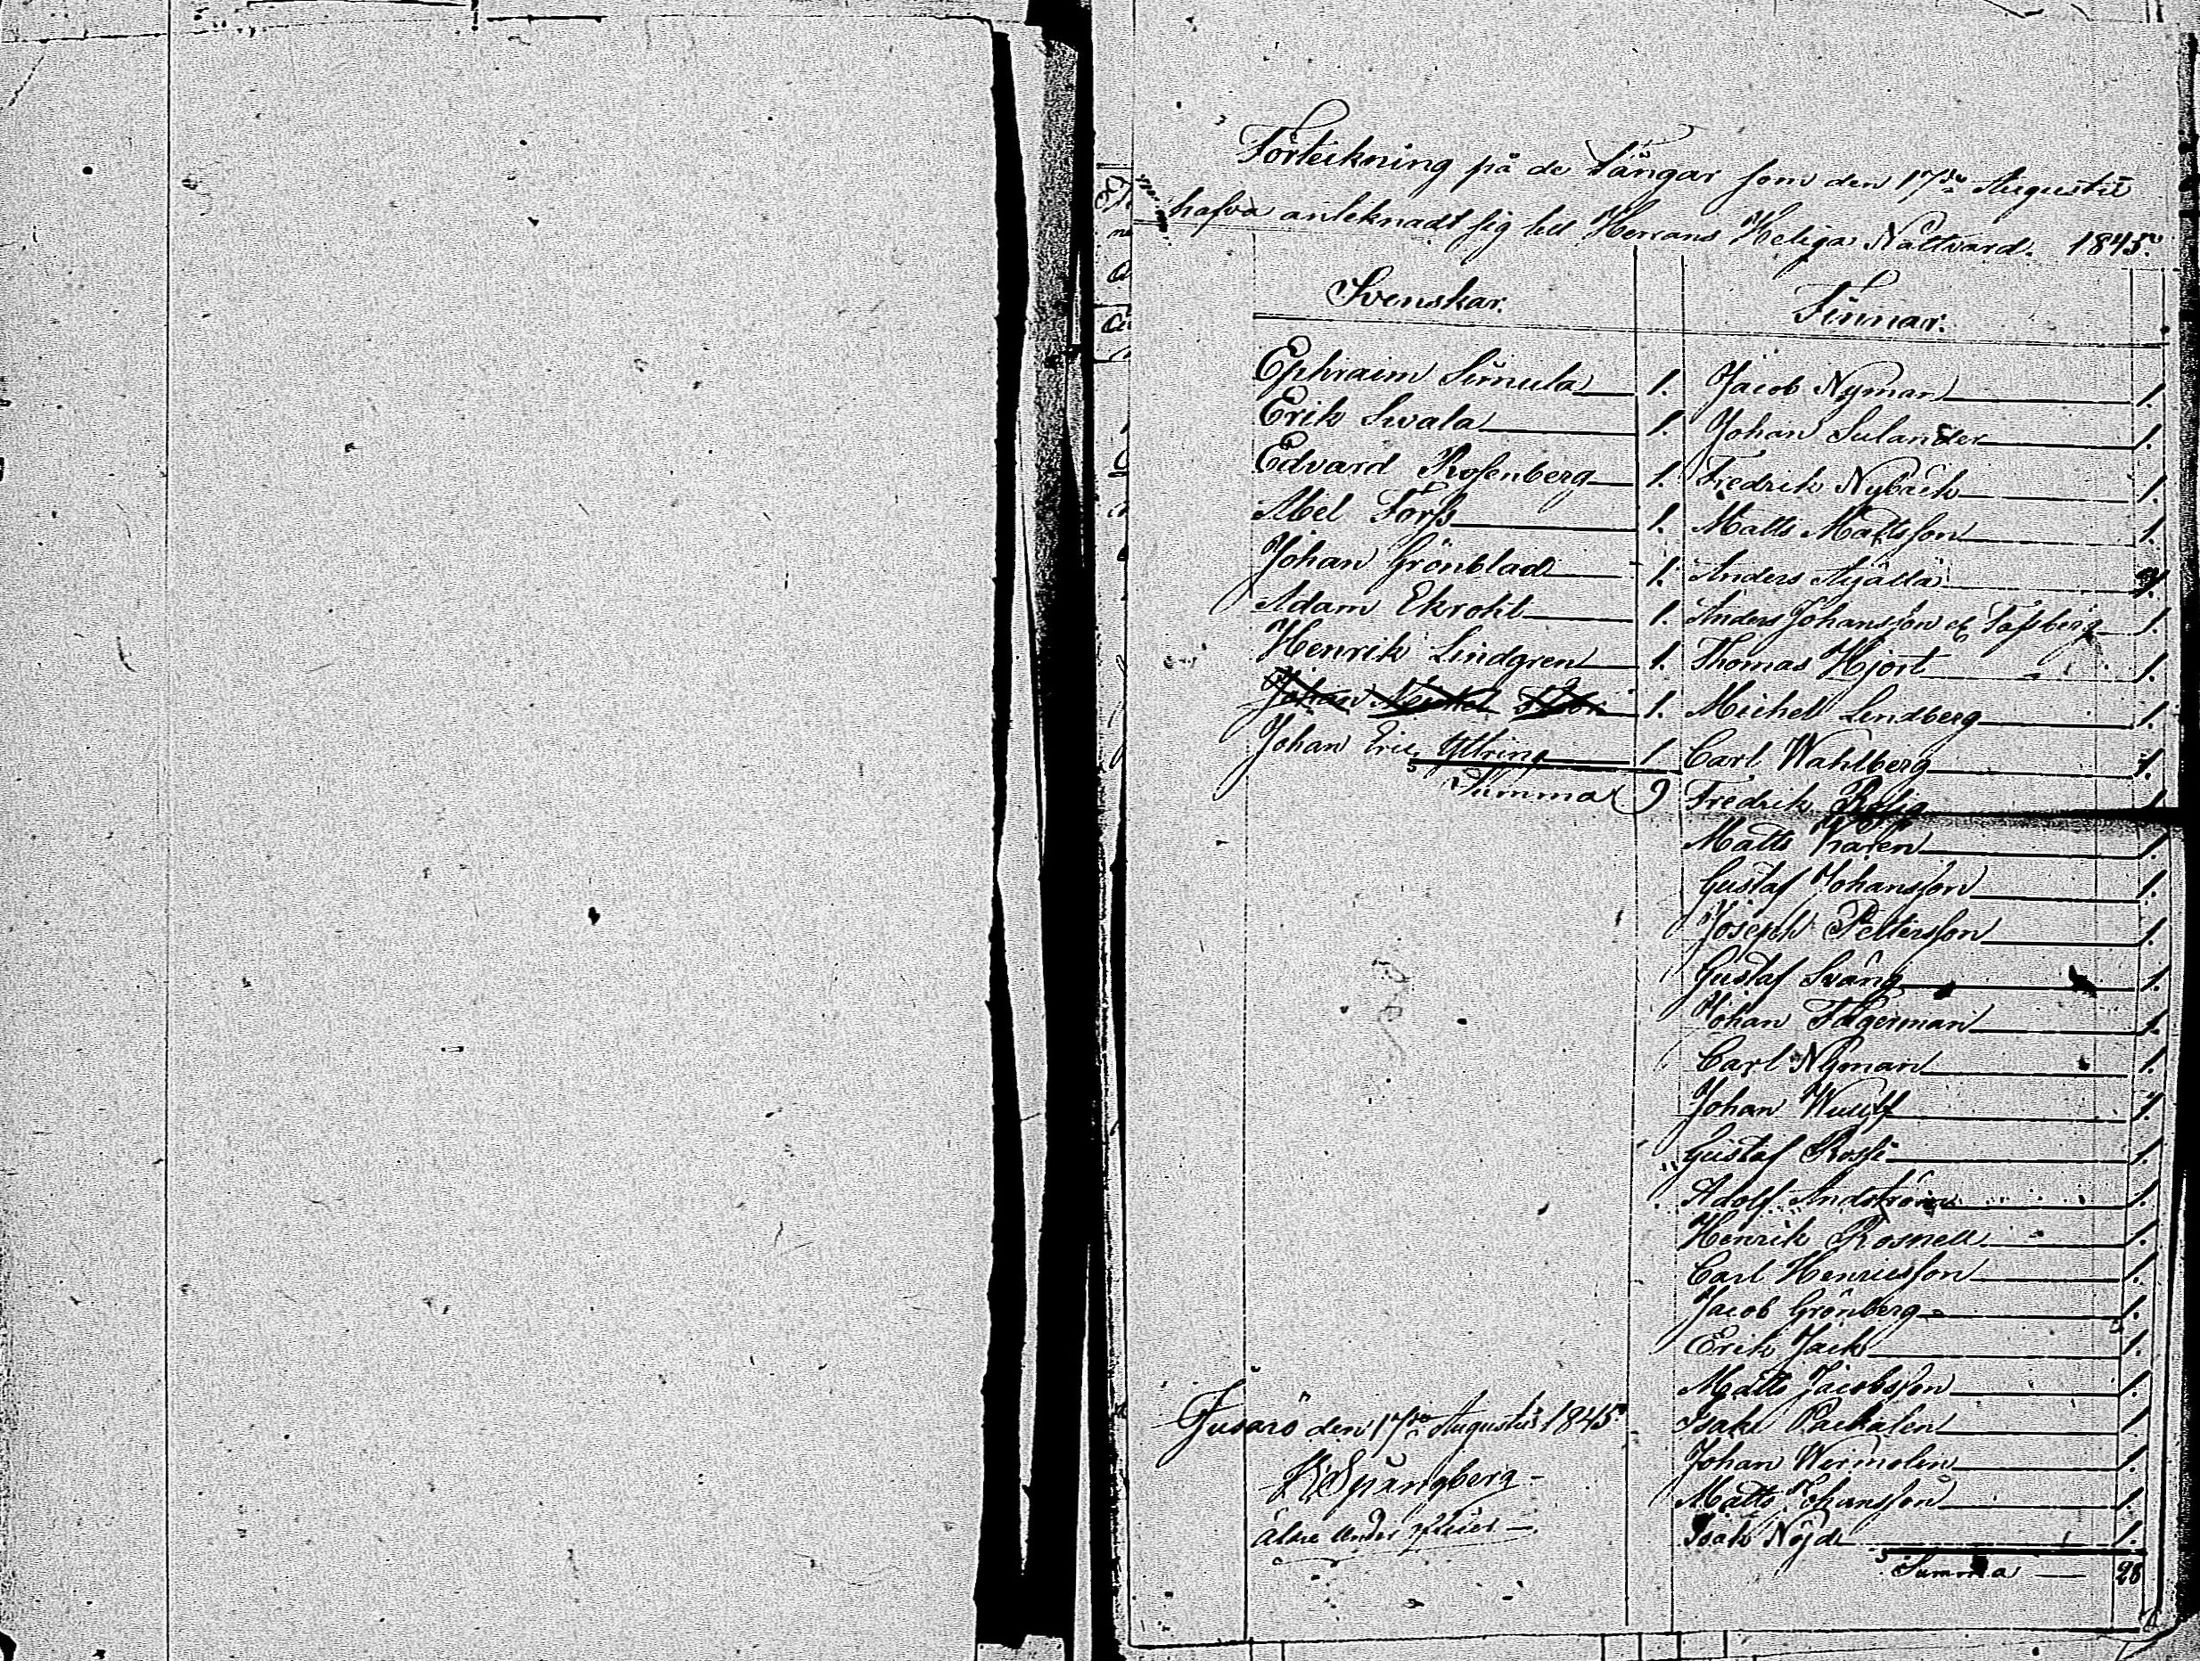 Förteckning på de Fångar som den 17de Augustii
hafva anteknadt sig till Herrans Heliga Nattvard. 1845.
Svenskar.
Ephraim Simula 1.
Erik Svala 1.
Edvard Rosenberg 1.
Abel Forss 1.
Johan Grönblad 1.
Adam Ekroht 1.
Henrik Lindgren 1.
Johan 1.
Johan Eric 1
Summa 9
Finnar.
Jacob Nyman 1.
Johan Sulander 1.
Fredrik Nyback 1.
Matts Mattsson 1.
Anders 1.
Anders Johansson el Tassberg 1.
Thomas Hjort 1.
Michel Lindberg 1.
Carl Wahlberg 1.
Fredrik 1.
Matts Karen 1.
Gustaf Johansson 1.
Joseph Pettersson 1.
Gustaf Svång 1.
Johan Fagerman 1.
Carl Nyman 1.
Johan Wuulf 1.
Gustaf 1.
Adolf Andström 1.
Henrik Rosnell 1.
Carl Henricsson 1.
Jacob Grönberg 1.
Erik Jack 1.
Matts Jacobsson 1.
Isak 1.
Johan Wermelin 1.
Matts Johansson 1.
Isak Nöjd 1.
Summa 28
Jusarö den 17de Augustii 1845.
Spångberg